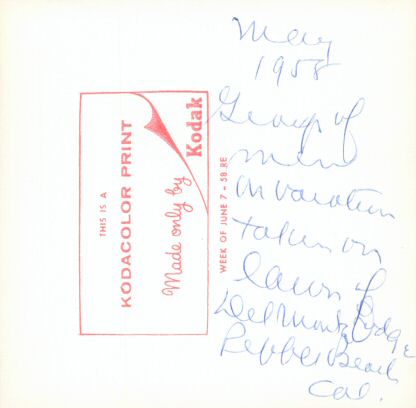 May
1958
Group of
men
on vacation
taken on
lawn of
Del Monte Lodge
Pebble Beach
Cal.
THIS IS A
KODACOLOR PRINT
Made only by
Kodak
WEEK OF JUNE 7 - 58 RE